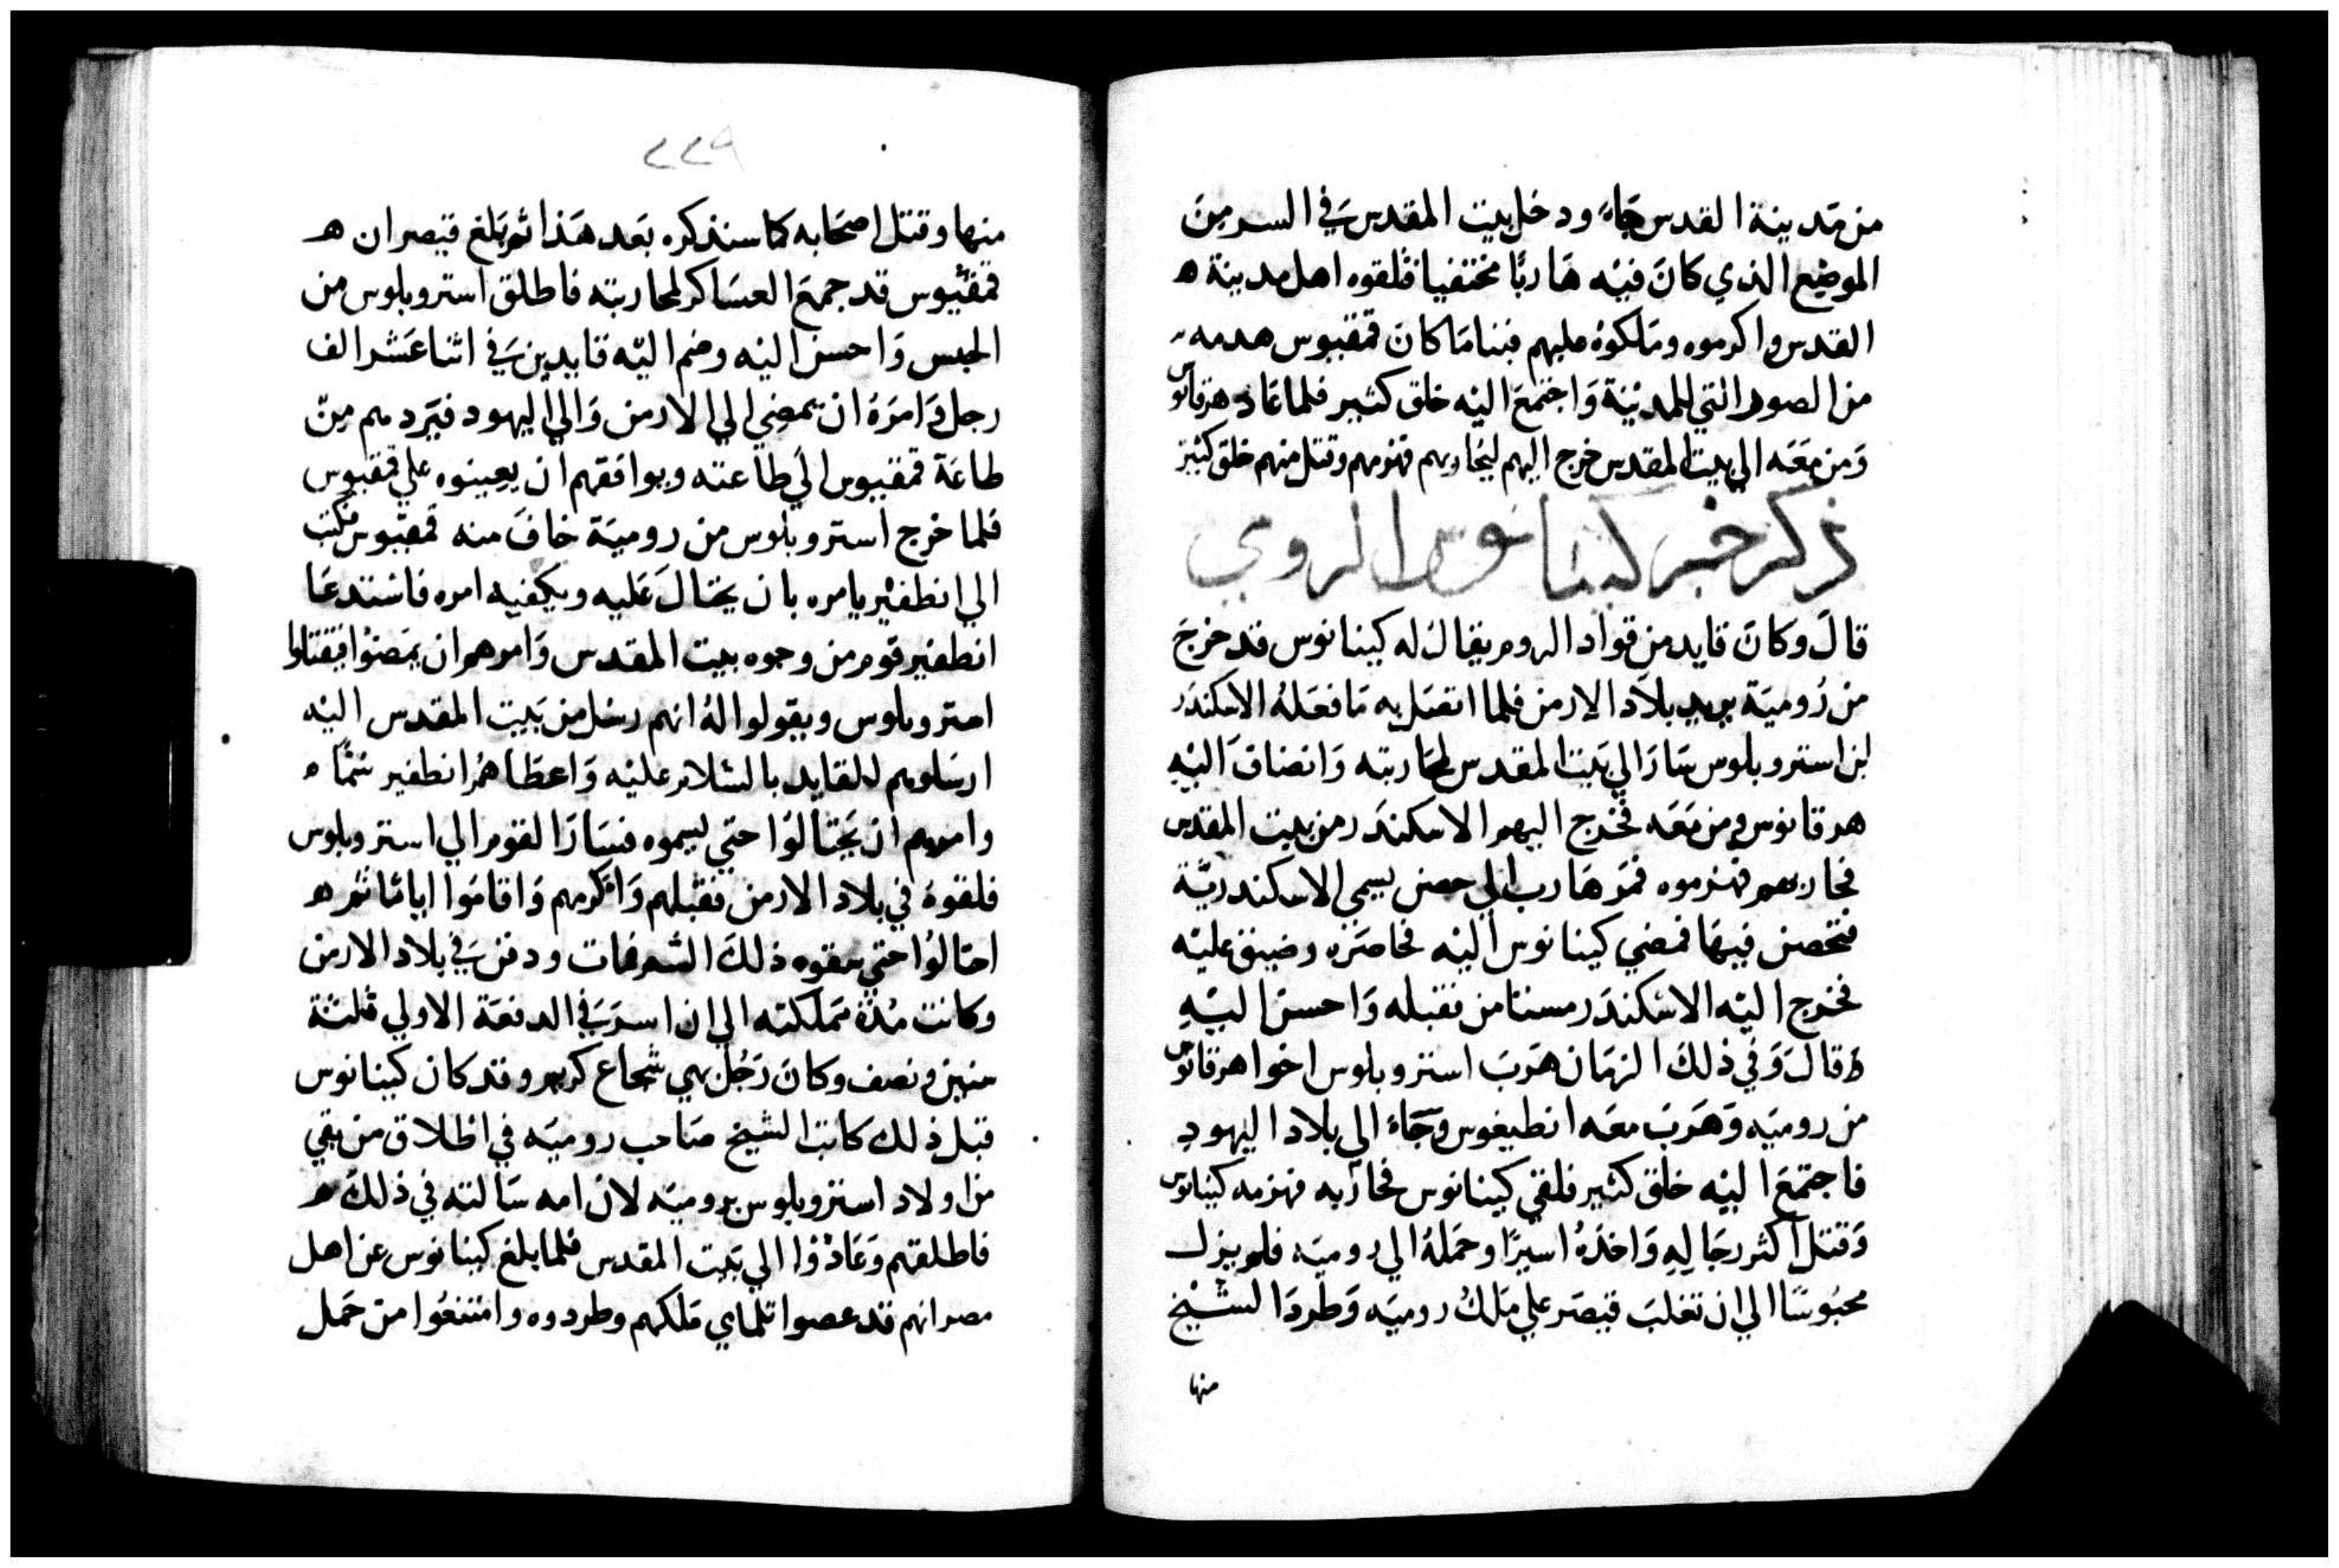 من مدينة القدس جاء ودخل بيت المقدس في السر من
الموضع الذي كان فيه هاربًا مختفيا فلقوه اهل مدينة ه
القدس واكرموه وملكوه عليهم فبنا ما كان قمفيوس هدمه
من الصور التي للمدينة واجتمع اليه خلق كثير فلما عاد هرقانوس
ومن معه الي بيت المقدس خرج اليهم ليحاربهم فهزمهم وقتل منهم خلق كثير
ذكر خبر كينانوس الرومي
قال وكان قايد من قواد الروم يقال له كينانوس قد خرج
من رومية يريد بلاد الارمن فلما اتصل به ما فعله الاسكندر
ابن استروبلوس سار الي بيت المقدس لمحاربته وانضاف اليه
هرقانوس ومن معه فخرج اليهم الاسكندر من بيت المقدس
فحاربهم فهزموه فمر هارب الي حصن يسمي الاسكندرية
فتحصن فيها فمضي كينانوس اليه فحاصره وضيق عليه
فخرج اليه الاسكندر مستامن فقبله واحسن اليه
قال وفي ذلك الزمان هرب استروبلوس اخوا هرقانوس
من روميه وهرب معه انطيغوس وجاء الي بلاد اليهود
فاجتمع اليه خلق كثير فلقي كينانوس فحاربه فهزمه كينانوس
وقتل اكثر رجاله واخذه اسيرًا وحمله الي روميه فلم يزل
محبوسًا الي ان تغلب قيصر علي ملك روميه وطرد الشيخ
منها
٢٢٩
منها وقتل اصحابه كما سنذكره بعد هذا ثم بلغ قيصر ان ه
قمفيوس قد جمع العساكر لمحاربته فاطلق استروبلوس من
الحبس واحسن اليه وضم اليه قايدين في اثنا عشر الف
رجل وامره ان يمضي الي الارمن والي اليهود فيردهم من
طاعة قمفيوس الي طاعته ويوافقهم ان يعينوه علي قمفيوس
فلما خرج استروبلوس من رومية خاف منه قمفيوس فكتب
الي انطفير يامره بان يحتال عليه ويكفيه امره فاستدعا
انطفير قوم من وجوه بيت المقدس وامرهم ان يمضوا فيقتلوا
استروبلوس ويقولوا له انهم رسل من بيت المقدس اليه
ارسلوهم للقايد بالسلام عليه واعطاهم انطفير سمًا ه
وامرهم ان يحتالوا حتي يسموه فسار القوم الي استروبلوس
فلقوه في بلاد الارمن فقبلهم واكرمهم واقاموا اياما ثم ه
احتالوا حتي سقوه ذلك السم فمات ودفن في بلاد الارمن
وكانت مدة مملكته الي ان اسر في الدفعة الاولي ثلثة
سنين ونصف وكان رجل بهي شجاع كريم وقد كان كينانوس
قبل ذلك كاتب الشيخ صاحب روميه في اطلاق من بقي
من اولاد استروبلوس بروميه لان امه سالته في ذلك ه
فاطلقهم وعادوا الي بيت المقدس فلما بلغ كينانوس عن اهل
مصر انهم قد عصوا تلماي ملكهم وطردوه وامتنعوا من حمل